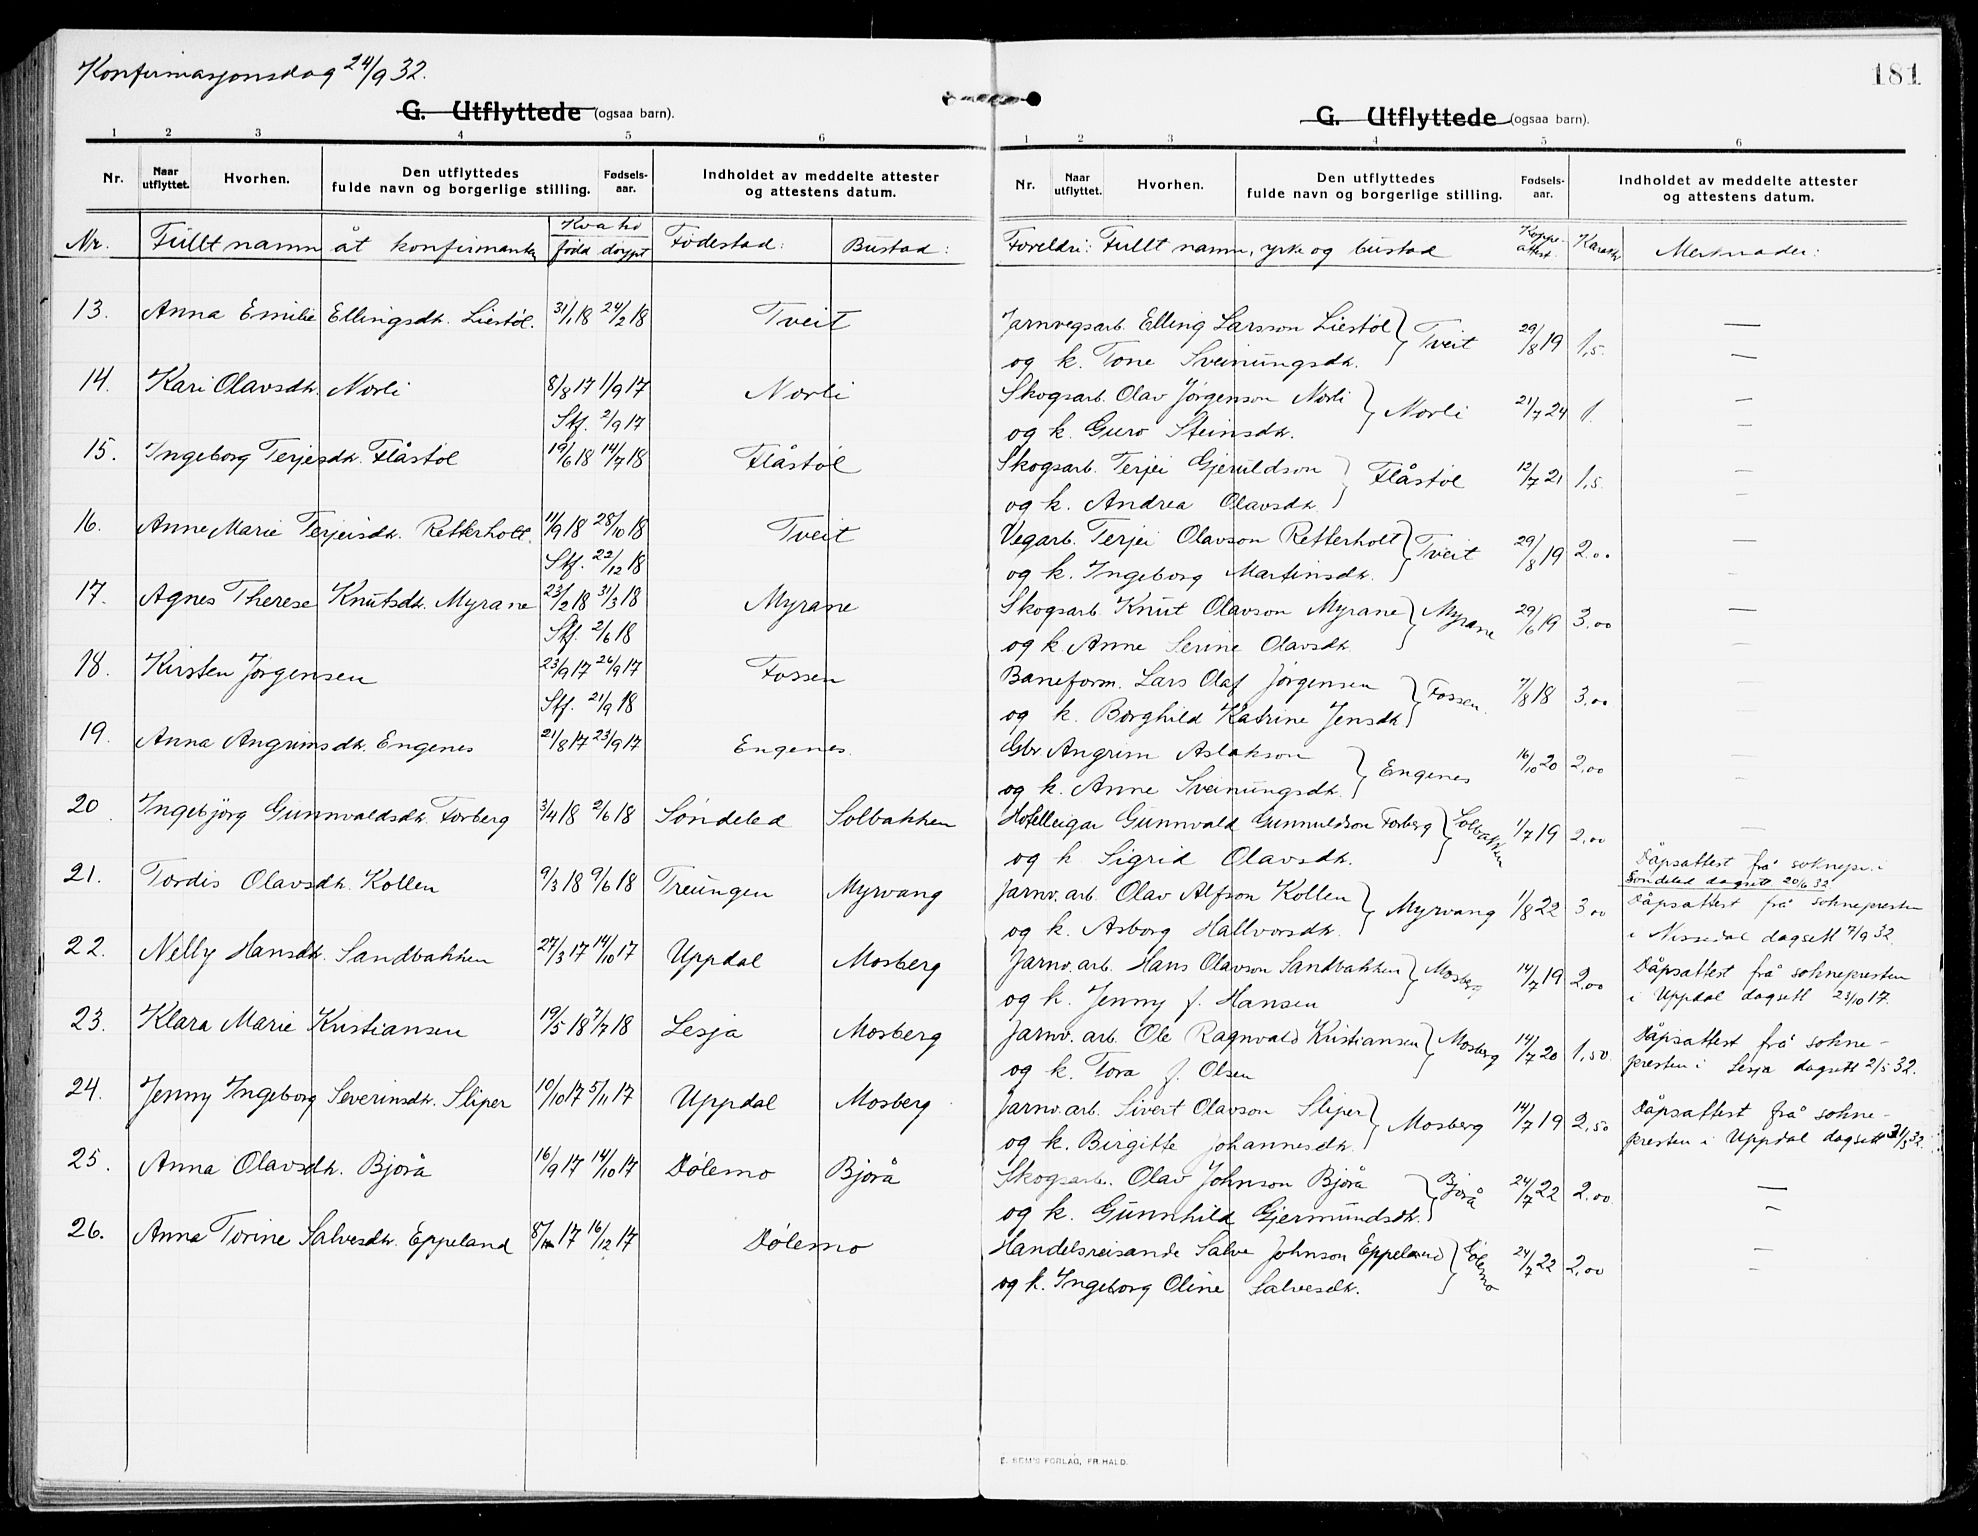 Konfirmasjonsdag 24/9 32.
G. Utflyttede (ogsaa barn).
1 2 3 4 5 6
Nr. Naar utflyttet. Hvorhen. Den utflyttedes fulde navn og borgerlige stilling. Fødsels-aar. Indholdet av meddelte attester og attestens datum.
Nr. Fullt namn åt konfirmanten Kva ho född döypt Födestad: Bustad:
13. Anna Emilie Ellingsdtr. Liestöl. 31/1 18 24/2 18 Tveit
14. Kari Olavsdtr. Norli 8/8 17 1/9 17 Norli
Stf. 2/9 17
15. Ingeborg Terjesdtr. Flåstöl 19/6 18 14/7 18 Flåstöl
16. Anne Marie Terjeisdtr. Retterholt. 11/9 18 28/10 18 Tveit
Stf. 22/12 18
17. Agnes Therese Knutsdtr. Myrane 23/2 18 31/3 18 Myrane
Stf. 2/6 18
18. Kirsten Jörgensen 23/9 17 26/9 17 Fossen
Stf. 21/9 18
19. Anna Angrimsdtr. Engenes 21/8 17 23/9 17 Engenes.
20 Ingebjörg Gunnvaldsdtr. Forberg 3/4 18 2/6 18 Söndeled Solbakken
21. Tordis Olavsdtr. Kollen 9/3 18 9/6 18 Treungen Myrvang
22. Nelly Hansdtr. Sandbakken 27/3 17 14/10 17 Uppdal Mosberg
23. Klara Marie Kristiansen 19/5 18 7/7 18 Lesja Mosberg
24. Jenny Ingeborg Severinsdtr. Sliper 10/10 17 5/11 17 Uppdal Mosberg
25. Anna Olavsdtr. Bjorå 16/9 17 14/10 17 Dölemo Bjorå
26. Anna Torine Salvesdtr. Eppeland 8/11 17 16/12 17 Dölemo
181
G. Utflyttede (ogsaa barn).
1 2 3 4 5 6
Nr. Naar utflyttet. Hvorhen. Den utflyttedes fulde navn og borgerlige stilling. Fødsels-aar. Indholdet av meddelte attester og attestens datum.
Foreldri: Fullt namn, yrke og bustad Koppe-attest. Karakter Merknader:
Jarnvegsarb. Elling Larsson Liestöl } Tveit 29/8 19 1,5. —
og k. Tone Sveinungsdtr. —
Skogsarb. Olav Jörgenson Norli } Norli 21/7 24 1. —
og k. Guro Steinsdtr. —
Skogsarb. Terjei Gjeruldson } Flåstöl 12/7 21 1,5. —
og k. Andrea Olavsdtr. —
Vegarb. Terjei Olavson Retterholt } Tveit 29/8 19 2.00 —
og k. Ingeborg Martinsdtr. —
Skogsarb. Knut Olavson Myrane } Myrane 29/6 19 3.00 —
og k. Anne Serine Olavsdtr. —
Baneform. Lars Olaf Jörgensen } Fossen. 7/8 18 3.00 —
og k. Borghild Katrine Jensdtr. —
Gbr Angrim Aslakson } Engenes 16/10 20 2,00 —
og k. Anne Sveinungsdtr. —
Hotelleigar Gunnvald Gunnuldson Forberg } Solbakken 1/7 19 2,00 —
og k. Sigrid Olavsdtr. Dåpsattest frå soknepr. i
Söndeled dagsett 20/6 32
Jarnv. arb. Olav Alfson Kollen } Myrvang 1/8 22 3 00 Dåpsattest frå soknepresten
og k. Asborg Hallvorsdtr. i Nissedal dagsett 7/9 32.
Jarnv. arb. Hans Olavson Sandbakken } Mosberg 14/7 19 2,00 Dåpsattest frå soknepresten
og k. Jenny f. Hansen i Uppdal dagsett 23/10 17.
Jarnv. arb. Ole Ragnvald Kristiansen } Mosberg 14/7 20 1,50. Dåpsattest frå sokne-
og k. Tora f. Olsen presten i Lesja dagsett 2/5 32.
Jarnv. arb. Sivert Olavson Sliper } Mosberg 14/7 19 2,50 Dåpsattest frå sokne-
og k. Birgitte Johannesdtr. presten i Uppdal dagsett 31/5 32.
Skogsarb. Olav Johnson Bjorå } Bjorå 24/7 22 2.00 —
og k. Gunnhild Gjermundsdtr. —
Handelsreisande Salve Johnson Eppeland } Dölemo 24/7 22 2,00 —
og k. Ingeborg Oline Salvesdtr. —
E. SEM'S FORLAG, FR.HALD.